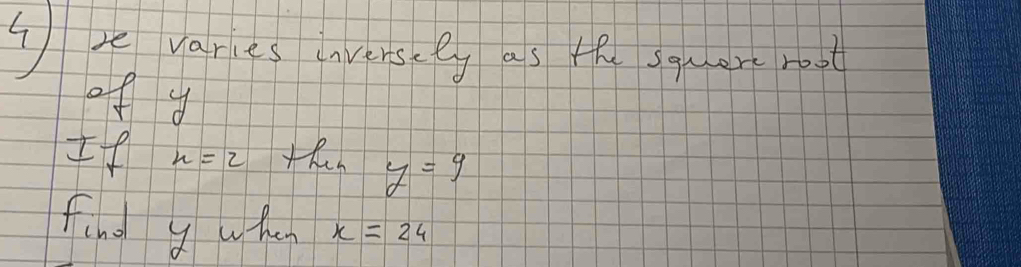 4) x varies inversely as the squere root
of y
If x=2 then y=9
find y when x=24